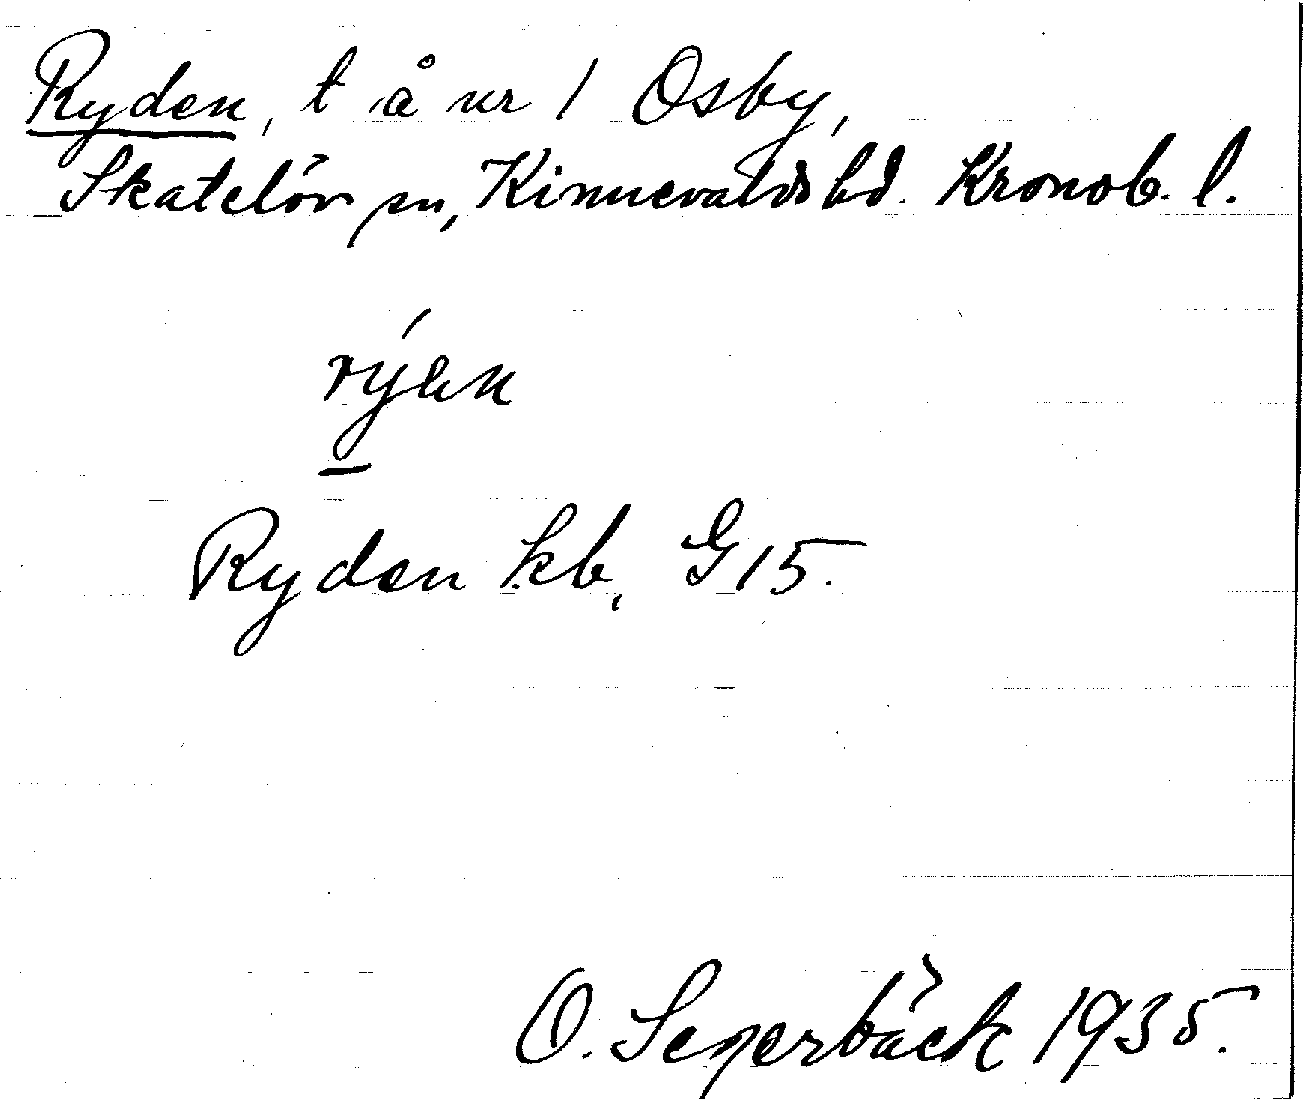 Ryden, t å nr 1 Osby,
Skatelöv sn, Kinnevalds hd. Kronob. l.
rýen
Ryden kb, G 15.
O. Segerbäck 1935.